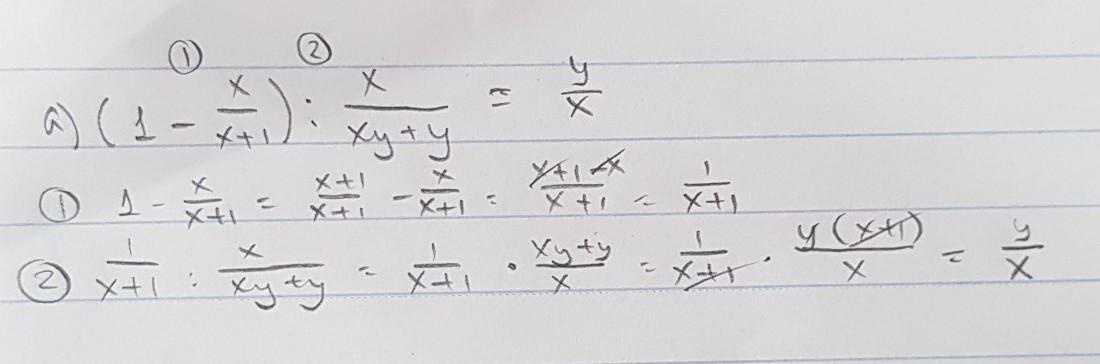 ① ②
a) (1 - x/(x+1)) : x/(xy+y) = y/x
① 1 - x/(x+1) = (x+1)/(x+1) - x/(x+1) = (x+1-x)/(x+1) = 1/(x+1)
② 1/(x+1) : x/(xy+y) = 1/(x+1) · (xy+y)/x = 1/(x+1) · y(x+1)/x = y/x